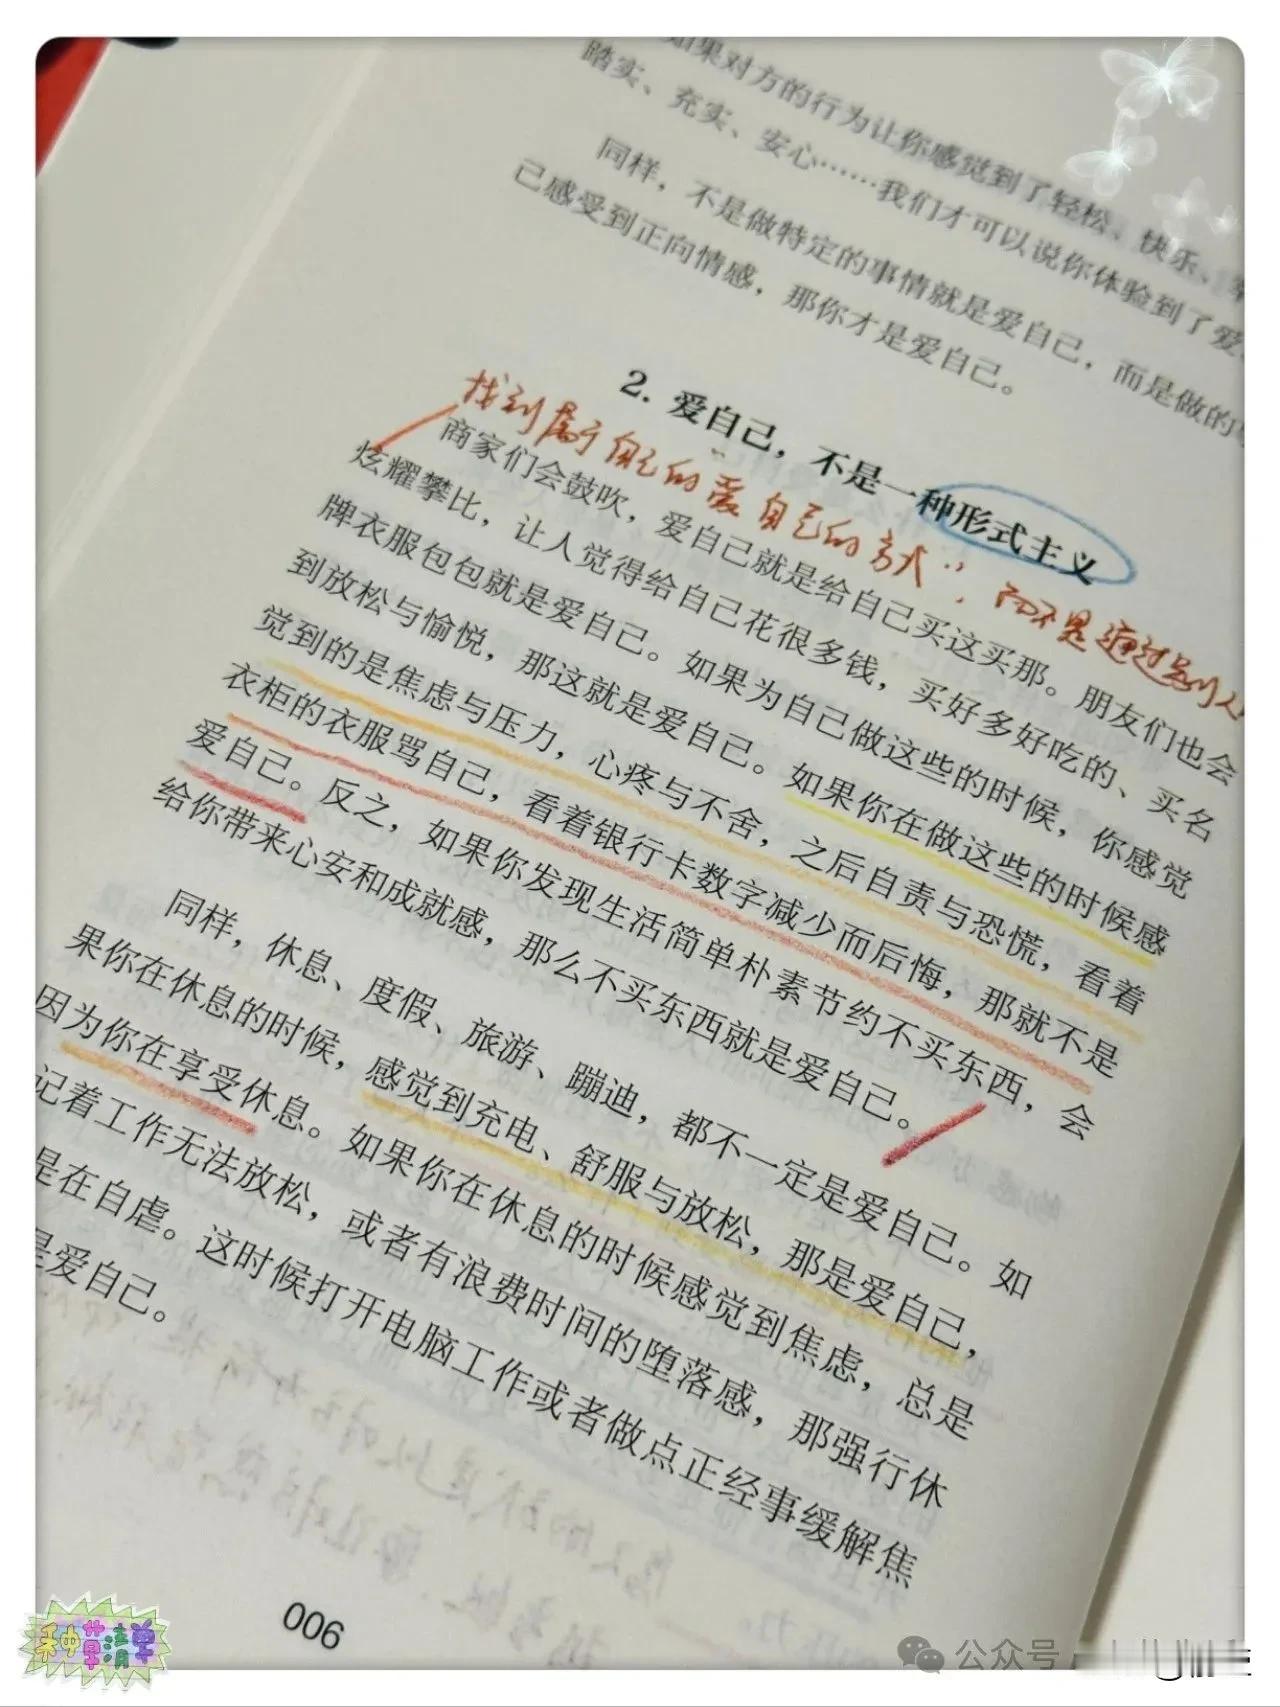 如果对方的行为让你感觉到了轻松、快乐、
踏实、充实、安心……我们才可以说你体验到了爱
同样，不是做特定的事情就是爱自己，而是做的
己感受到正向情感，那你才是爱自己。
2. 爱自己，不是一种形式主义
找到属于自己的“爱自己的方式”，而不是通过别人
商家们会鼓吹，爱自己就是给自己买这买那。朋友们也会
炫耀攀比，让人觉得给自己花很多钱，买好多好吃的、买名
牌衣服包包就是爱自己。如果为自己做这些的时候，你感觉
到放松与愉悦，那这就是爱自己。如果你在做这些的时候感
觉到的是焦虑与压力，心疼与不舍，之后自责与恐慌，看着
衣柜的衣服骂自己，看着银行卡数字减少而后悔，那就不是
爱自己。反之，如果你发现生活简单朴素节约不买东西，会
给你带来心安和成就感，那么不买东西就是爱自己。
同样，休息、度假、旅游、蹦迪，都不一定是爱自己。如
果你在休息的时候，感觉到充电、舒服与放松，那是爱自己，
因为你在享受休息。如果你在休息的时候感觉到焦虑，总是
记着工作无法放松，或者有浪费时间的堕落感，那强行休
是在自虐。这时候打开电脑工作或者做点正经事缓解焦
是爱自己。
006
种草清单
公众号